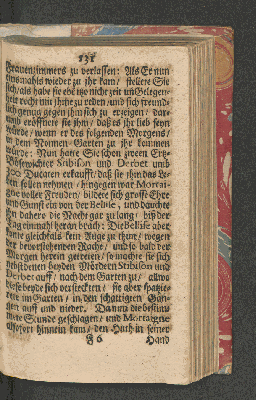 131
Frauenzimmers zu verlassen: Als Er nun
einsmahls wieder zu ihr kam / stellete Sie
sich / als habe sie ebe itzo nicht zeit uñ Gelegen-
heit recht mit ihme zu reden / und sich freund-
lich genug gegen ihn sich zu erzeigen / dar-
umb eröffnete sie ihm / daß es ihr lieb seyn
würde / wenn er des folgenden Morgens /
in dem Garten zu ihr kommen
würde: Nun hatte Sie schon zween Ertz-
Bösewichter Stibilon und Derbet umb
300. Ducaten erkaufft / daß sie ihm das Le-
ben sollen nehmen / hingegen war Mortai-
gne voller Freuden / bildete sich grosse Ehre
und Gunst ein von der Bellise / und dauchte
ihn dahero die Nacht gar zu lang / biß der
Tag einmahl heran brach: Die Bellise aber
konte gleichfals kein Auge zu thun / wegen
der bevorstehenden Rache / und so bald der
Morgen herein getreten / so machte sie sich
nebst denen beyden Mördern Stibilon und
Derbet auff / nach dem Garten zu / allwo
diese beyde sich versteckten / sie aber spazie-
rete im Garten / in den schattigten Gän-
gen auff und nieder. Da nun die bestim-
mete Stunde geschlagen / und Mortaigne
alsofort hinnein kam / den Huth in seiner
G 6 Hand